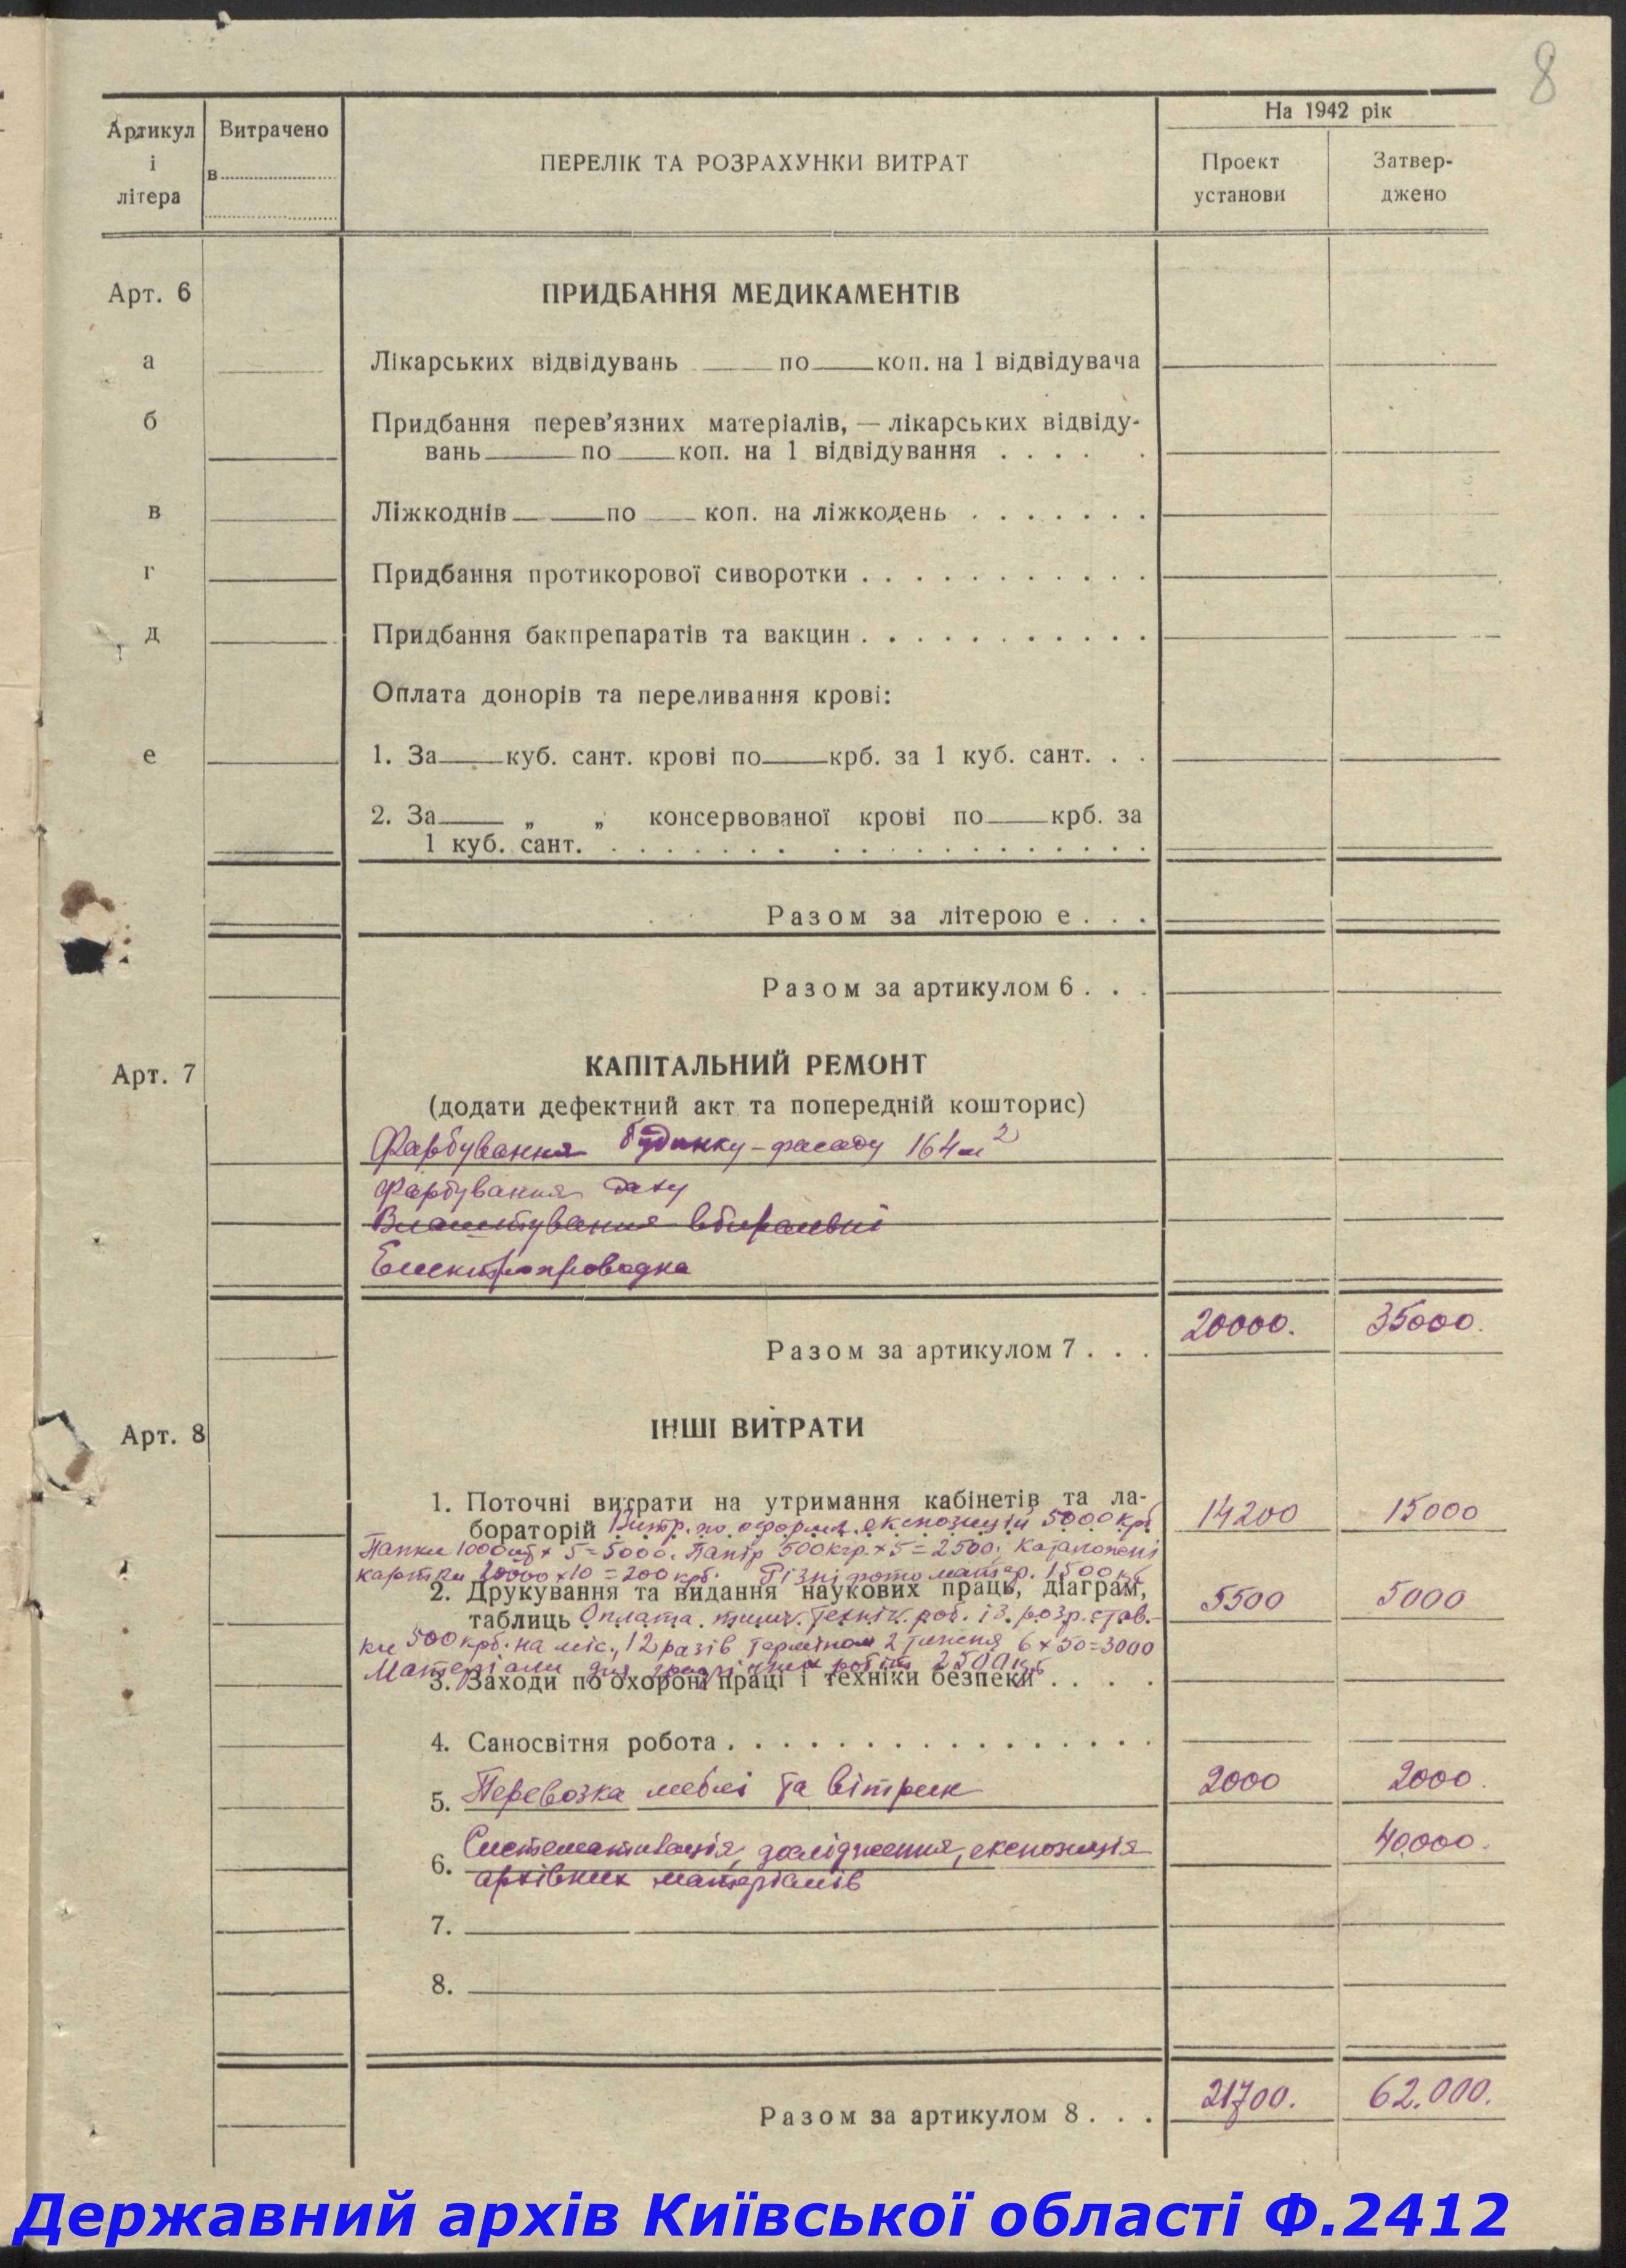 8
Артикул і літера
Витрачено в
ПЕРЕЛІК ТА РОЗРАХУНКИ ВИТРАТ
На 1942 рік
Проект установи
Затвер-
джено
Арт. 6
ПРИДБАННЯ МЕДИКАМЕНТІВ
а Лікарських відвідувань ____ по ____ коп. на 1 відвідувача
б Придбання перев’язних матеріалів, — лікарських відвіду-
вань ____ по ____ коп. на 1 відвідування . . . . .
в Ліжкоднів ____ по ____ коп. на ліжкодень . . . . . . .
г Придбання протикорової сиворотки . . . . . . . . . . .
д Придбання бакпрепаратів та вакцин . . . . . . . . . . .
Оплата донорів та переливання крові:
е 1. За ____ куб. сант. крові по ____ крб. за 1 куб. сант. . .
2. За ____ „ „ консервованої крові по ____ крб. за
1 куб. сант. . . . . . . . . . . . . . . . . . . .
Разом за літерою е . . .
Разом за артикулом 6 . . .
Арт. 7
КАПІТАЛЬНИЙ РЕМОНТ
(додати дефектний акт та попередній кошторис)
Фарбування будинку - фасаду 164 м2
Фарбування даху
Влаштування вбиральні
Електропроводка
Разом за артикулом 7 . . . 20000. 35000.
Арт. 8
ІНШІ ВИТРАТИ
1. Поточні витрати на утримання кабінетів та ла-
бораторій Витр. по оформл. експозицій 5000 крб 14200 15000
Папки 1000 шт × 5 = 5000. Папір 500 кгр. × 5 = 2500. Каталожні
картки 20000 × 10 = 200 крб. Різні фото матер. 1500 крб
2. Друкування та видання наукових праць, діаграм, 5500 5000
таблиць Оплата тимч. технік. роб. із розр. став-
ки 500 крб. на міс., 12 разів терміном 2 тижня 6 × 50 = 3000
Матеріали для робіт 2500 крб
3. Заходи по охороні праці і техніки безпеки . . . .
4. Саносвітня робота . . . . . . . . . . . . . . . .
5. Перевозка меблі та вітрин 2000 2000.
6. Систематизація, дослідження, експозиція 40.000.
архівних матеріалів
7.
8.
Разом за артикулом 8 . . . 21700. 62.000.
Державний архів Київської області Ф.2412